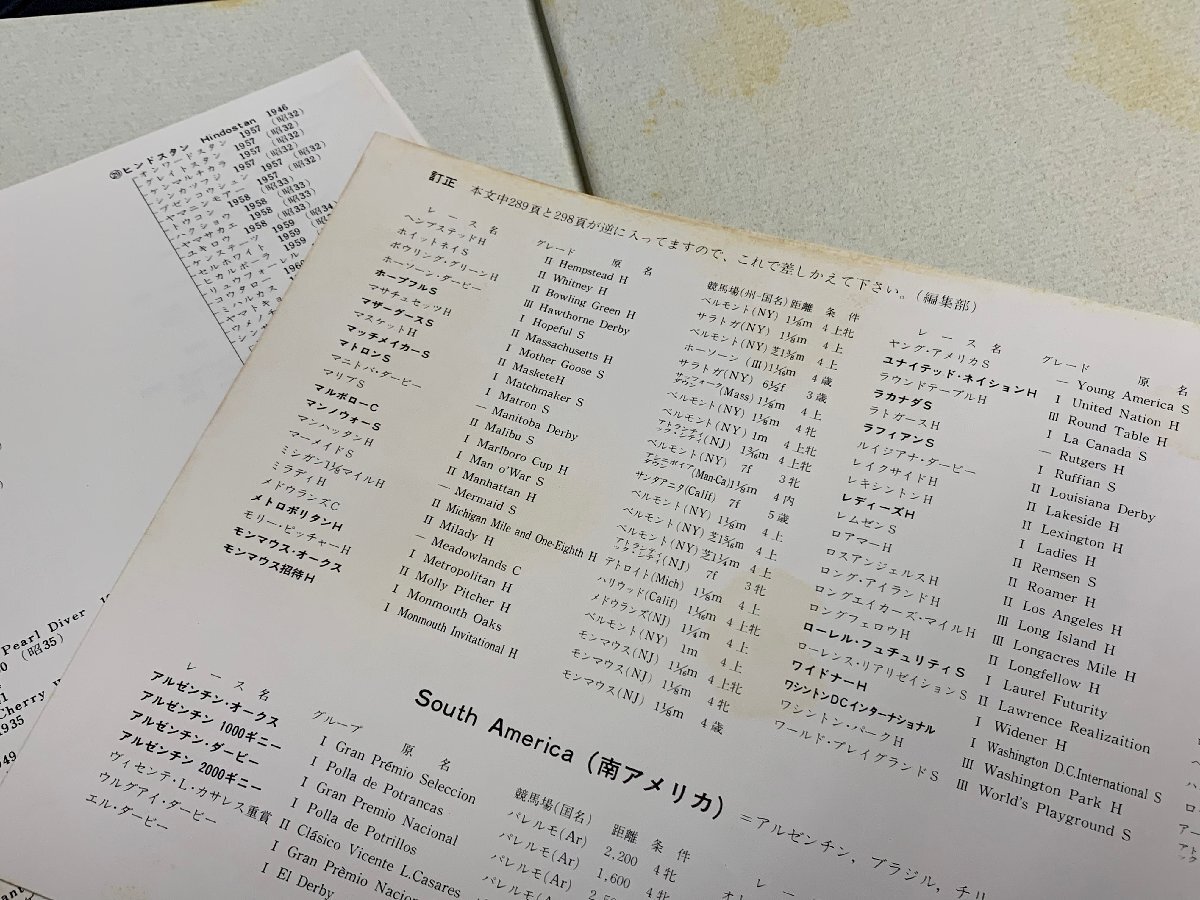 ㉙ヒンドスタン Hindostan 1946
オンワードスタン 1957 (昭32)
グレイトスタン 1957 (昭32)
ケンマルチカラ 1957 (昭32)
ケンカツフジ 1957 (昭32)
ヤマニンモアー 1957 (昭32)
トウコン 1958 (昭33)
ハクショウ 1958 (昭33)
ヤマサカエ 1958 (昭33)
ユキロウ 1959 (昭34)
ケンステーツ 1959
セルホワイト 1959
ヒカルポーラ
リュウフォーレル
コウタロー
ミハルカス
Pearl Diver
(昭35)
Cherry
1935
訂正 本文中289頁と298頁が逆に入ってますので、これで差しかえて下さい。(編集部)
レース名 グレード 原名 競馬場(州−国名) 距離 条件
ヘンプステッドH II Hempstead H ベルモント(NY) 1⅛m 4上牝
ホイットネイS II Whitney H サラトガ(NY) 1⅛m 4上
ボウリング・グリーンH II Bowling Green H ベルモント(NY) 芝1⅜m 4上
ホーソーン・ダービー III Hawthorne Derby ホーソーン(Ill) 4歳
ホープフルS I Hopeful S サラトガ(NY) 6½f 3歳
マサチュセッツH II Massachusetts H サッフォーク・ダウンズ(Mass) 1⅛m 4上
マザーグースS I Mother Goose S ベルモント(NY) 1⅛m 4牝
マスケットH II MasketeH ベルモント(NY) 1m 4上牝
マッチメイカーS I Matchmaker S アトランティック・シティ(NJ) 4上牝
マトロンS I Matron S ベルモント(NY) 7f 3牝
マニトバ・ダービー — Manitoba Derby アシニボイア・ダウンズ(Man-Ca) 1⅛m 4内
マリブS II Malibu S サンタアニタ(Calif) 7f 5歳
マルボローC I Marlboro Cup H ベルモント(NY) 4上
マンノウォーS I Man o' War S ベルモント(NY) 4上
マンハッタンH II Manhattan H ベルモント(NY) 4上
マーメイドS — Mermaid S アトランティック・シティ(NJ) 7f 3牝
ミシガン1⅛マイルH II Michigan Mile and One-Eighth H デトロイト(Mich) 1⅛m 4上
ミラディH II Milady H ハリウッド(Calif) 4上牝
メドウランズC — Meadowlands C メドウランズ(NJ) 1¼m 4上
メトロポリタンH I Metropolitan H ベルモント(NY) 1m 4上
モリー・ピッチャーH II Molly Pitcher H モンマウス(NJ) 4上牝
モンマウス・オークス I Monmouth Oaks モンマウス(NJ) 1⅛m 4牝
モンマウス招待H I Monmouth Invitational H モンマウス(NJ) 1⅛m 4歳
レース名 グレード 原名
ヤング・アメリカS — Young America S
ユナイテッド・ネイションH I United Nation H
ラウンドテーブルH III Round Table H
ラカナダS I La Canada S
ラトガースH — Rutgers H
ラフィアンS I Ruffian S
ルイジアナ・ダービー II Louisiana Derby
レイクサイドH II Lakeside H
レキシントンH II Lexington H
レディーズH I Ladies H
レムゼンS II Remsen S
ロアマーH II Roamer H
ロスアンジェルスH II Los Angeles H
ロング・アイランドH III Long Island H
ロングエイカーズ・マイルH III Longacres Mile H
ロングフェロウH II Longfellow H
ローレル・フュチュリティS I Laurel Futurity
ローレンス・リアリゼイションS II Lawrence Realizaition
ワイドナーH I Widener H
ワシントンDCインターナショナル I Washington D.C.International S
ワシントン・パークH III Washington Park H
ワールド・プレイグランドS III World's Playground S
South America (南アメリカ) =アルゼンチン, ブラジル, チリ
レース名 グループ 原名 競馬場(国名) 距離 条件
アルゼンチン・オークス I Gran Prémio Seleccion パレルモ(Ar) 2,200 4牝
アルゼンチン 1000ギニー I Polla de Potrancas パレルモ(Ar) 1,600 4牝
アルゼンチン・ダービー I Gran Premio Nacional パレルモ(Ar)
アルゼンチン 2000ギニー I Polla de Potrillos パレルモ(Ar)
ヴィセンテ・L・カサレス重賞 II Clásico Vicente L.Casares
ウルグアイ・ダービー I Gran Prèmio Nacional
エル・ダービー I El Derby
レー